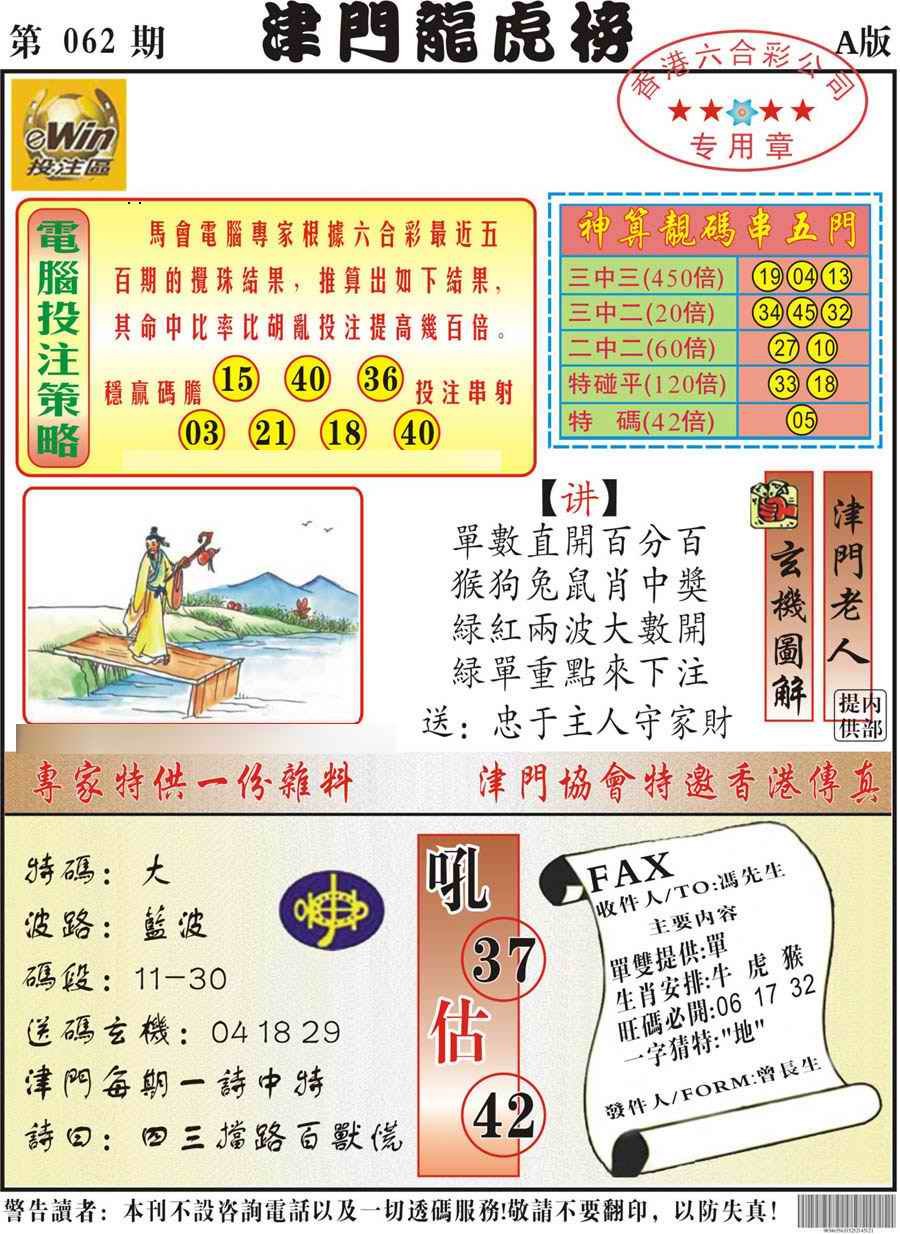 第 062 期
津門龍虎榜
A版
香港六合彩公司
专用章
eWin
投注區
電腦投注策略
馬會電腦專家根據六合彩最近五
百期的攪珠結果，推算出如下結果，
其命中比率比胡亂投注提高幾百倍。
穩贏碼膽 15 40 36 投注串射
03 21 18 40
神算靚碼串五門
三中三(450倍) 19 04 13
三中二(20倍) 34 45 32
二中二(60倍) 27 10
特碰平(120倍) 33 18
特 碼(42倍) 05
【讲】
單數直開百分百
猴狗兔鼠肖中獎
綠紅兩波大數開
綠單重點來下注
送：忠于主人守家財
玄機圖解
津門老人
内部提供
專家特供一份雜料
津門協會特邀香港傳真
特碼：大
波路：籃波
碼段：11-30
送碼玄機：04 18 29
津門每期一詩中特
詩曰：四三擋路百獸慌
吼
37
估
42
FAX
收件人/TO:馮先生
主要内容
單雙提供:單
生肖安排:牛 虎 猴
旺碼必開:06 17 32
一字猜特:"地"
發件人/FORM:曾長生
警告讀者：本刊不設咨詢電話以及一切透碼服務!敬請不要翻印，以防失真！